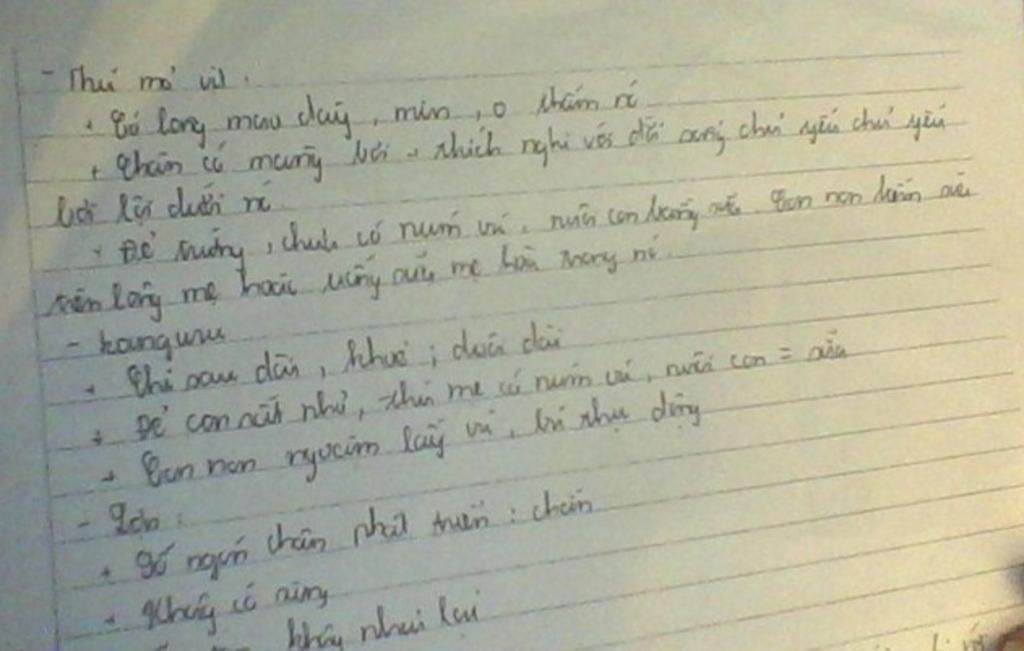 - Thú mỏ vịt:
+ Có lông mao dày, mịn, 0 thấm nc
+ Chân có màng bơi → thích nghi với đời sống chủ yếu chủ yếu
bơi lội dưới nc
+ Đẻ trứng, chưa có núm vú, nuôi con bằng sữa. Con non liếm sữa
trên lông mẹ hoặc uống sữa mẹ hòa trong nc.
- kanguru
+ Chi sau dài, khoẻ; đuôi dài
+ Đẻ con rất nhỏ, thú mẹ có núm vú, nuôi con = sữa
+ Con non ngoạm lấy vú, bú thụ động
- Lợn:
+ Số ngón chân phát triển: chẵn
+ Không có sừng
không nhai lại